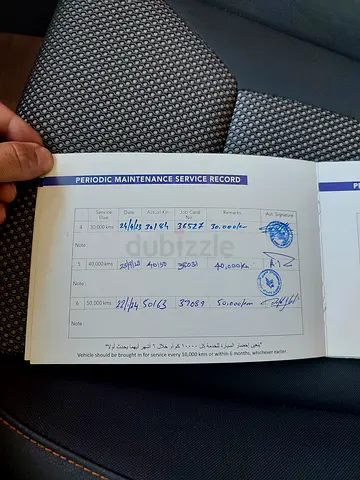 PERIODIC MAINTENANCE SERVICE RECORD
PE
Service Due Date Actual Km Job Card No Remarks Aut. Signature
4 30,000 kms 30184 36527 30.000/km
Note
dubizzle
5 40,000 kms 40150 40,000/km
Note
6 50,000 kms 22/1/24 50163 50.000/km
Note
"يتعين إحضار السيارة للخدمة كل ١٠٠٠٠ كم أو خلال ٦ أشهر أيهما يحدث أولا"
Vehicle should be brought in for service every 10,000 kms or within 6 months, whichever earlier.